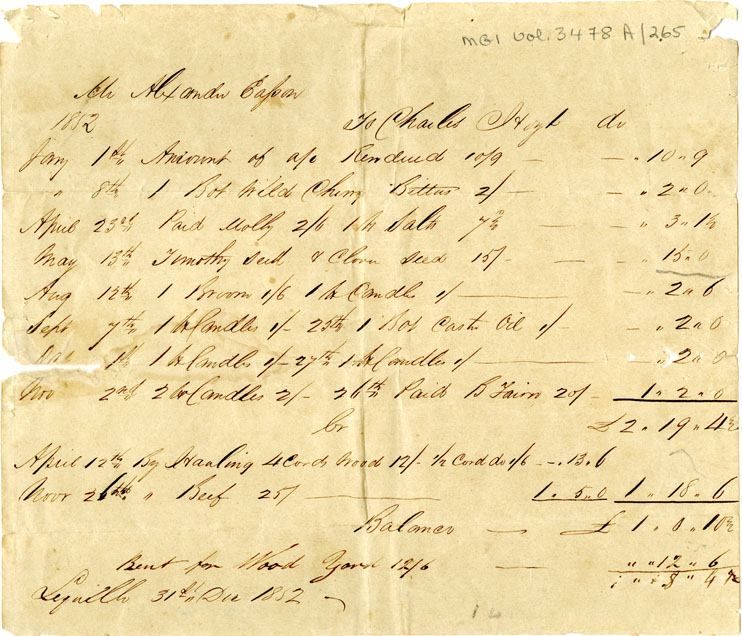 MG1 Vol. 3478 A/265
Mr Alexander Easson
1852 To Charles Hoyt do
Jany 1st Amount of a/c Rendered 10/9 — — „ 10 „ 9
„ 8th 1 Bot Wild Cherry Bitters 2/ — — „ 2 „ 0
April 23rd Paid Molly 2/6 1 lb Salts 7½ — — „ 3 „ 1½
May 13th Timothy seed & Clover seed 15/- — — „ 15 „ 0
Aug 12th 1 Broom 1/6 1 lb Candles 1/ — „ 2 „ 6
Sept 7th 1 lb Candles 1/- 25th 1 Bot Castr Oil 1/- — „ 2 „ 0
1st 1 lb Candles 1/- 27th 1 lb Candles 1/ — „ 2 „ 0
Nov 2nd 2 lb Candles 2/- 26th Paid B 20/- 1 „ 2 „ 0
Cr £2 „ 19 „ 4½
April 12th By Haaling 4 Cords Wood 12/- 1/2 Cord do 1/6 — „ 13 „ 6
Novr 26th „ Beef 25/ — 1 „ 5 „ 0 1 „ 18 „ 6
Balance — £ 1 „ 0 „ 10½
Rent for Wood Yard 12/6 — „ „ 12 „ 6
„ 8 „ 4½
Lequille 31st Dec 1852